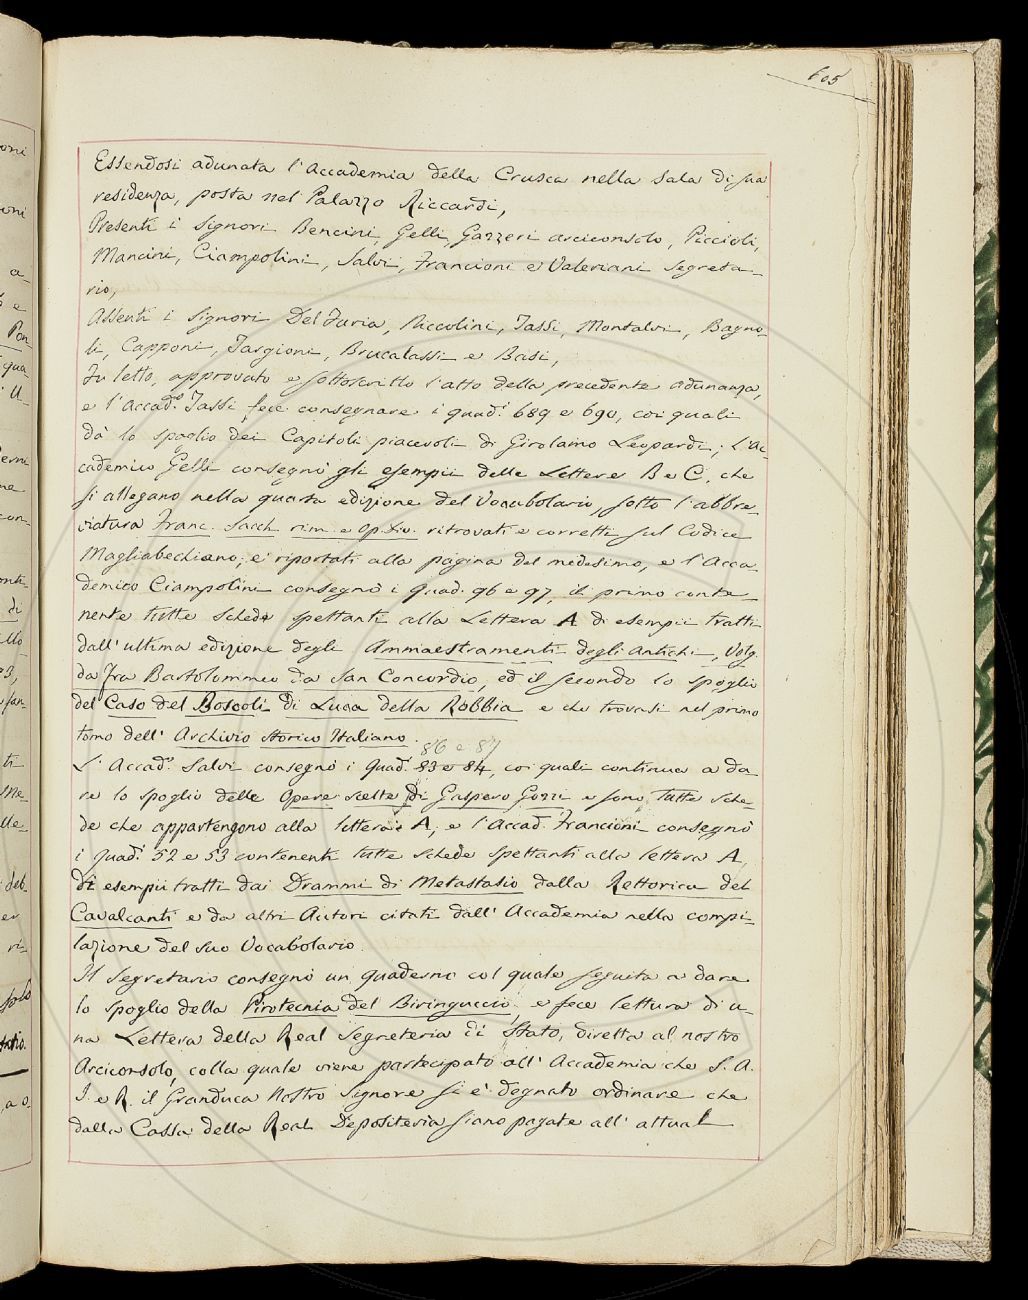 605
Essendosi adunata l'Accademia della Crusca nella sala di sua
residenza, posta nel Palazzo Riccardi,
Presenti i Signori Bencini, Gelli, Gazzeri arciconsolo, Piccioli,
Mancini, Ciampolini, Salvi, Francioni e Valeriani Segreta-
rio,
Assenti i Signori Del Furia, Niccolini, Tassi, Montalvi, Bagno-
li, Capponi, Targioni, Brucalassi e Basi,
Fu letto, approvato e sottoscritto l'atto della precedente adunanza,
e l'Accad.º Tassi fece consegnare i quad.i 689 e 690, coi quali
dà lo spoglio dei Capitoli piacevoli di Girolamo Leopardi; L'Ac-
cademico Gelli consegnò gli esempii delle Lettere B e C, che
si allegano nella quarta edizione del Vocabolario, sotto l'abbre-
viatura Franc. Sacch. rim. e Op. div. ritrovati e corretti sul Codice
Magliabechiano, e riportati alla pagina del medesimo, e l'Acca-
demico Ciampolini consegnò i Quad. 96 e 97, il primo conte-
nente tutte schede spettanti alla Lettera A di esempii tratti
dall'ultima edizione degli Ammaestramenti degli Antichi, Volg.
da Fra Bartolommeo da San Concordio, ed il secondo lo spoglio
del Caso del Boscoli di Luca della Robbia e che trovasi nel primo
tomo dell'Archivio Storico Italiano.
86 e 87
L'Accad.º Salvi consegnò i Quad.i 83 e 84, coi quali continua a da-
re lo spoglio delle Opere scelte di Gaspero Gozzi e sono tutte sche-
de che appartengono alla lettera A, e l'Accad. Francioni consegnò
i quad.i 52 e 53 contenenti tutte schede spettanti alla lettera A,
di esempii tratti dai Drammi di Metastasio dalla Rettorica del
Cavalcanti e da altri Autori citati dall'Accademia nella compi-
lazione del suo Vocabolario.
Il Segretario consegnò un quaderno col quale seguita a dare
lo spoglio della Pirotecnia del Biringuccio, e fece lettura di u-
na Lettera della Real Segreteria di Stato, diretta al nostro
Arciconsolo, colla quale viene partecipato all'Accademia che S. A.
I. e R. il Granduca Nostro Signore si è degnato ordinare che
dalla Cassa della Real Depositeria siano pagate all'attual